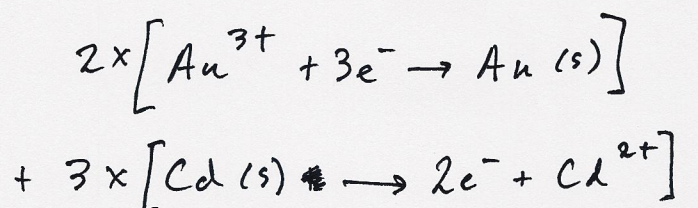 2×[Au³⁺ + 3e⁻ → Au (s)]
+ 3×[Cd (s) → 2e⁻ + Cd²⁺]